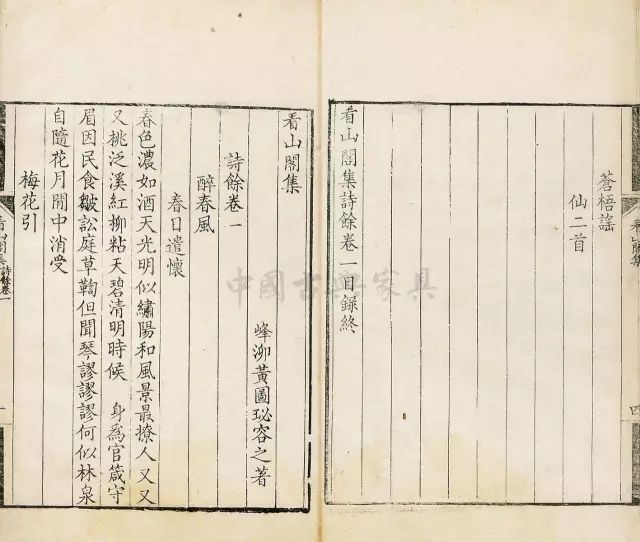 蒼梧謠
仙二首
看山閣集詩餘卷一目錄終
看山閣集
峰泖黃圖珌容之著
詩餘卷一
醉春風
春日遣懷
春色濃如酒天光明似繡陽和風景最撩人又又
又桃泛溪紅柳粘天碧清明時候　身爲官箴守
眉因民食皺訟庭草鞫但聞琴謬謬謬何似林泉
自隨花月閒中消受
梅花引
看山閣集 詩餘卷一
中國古典家具